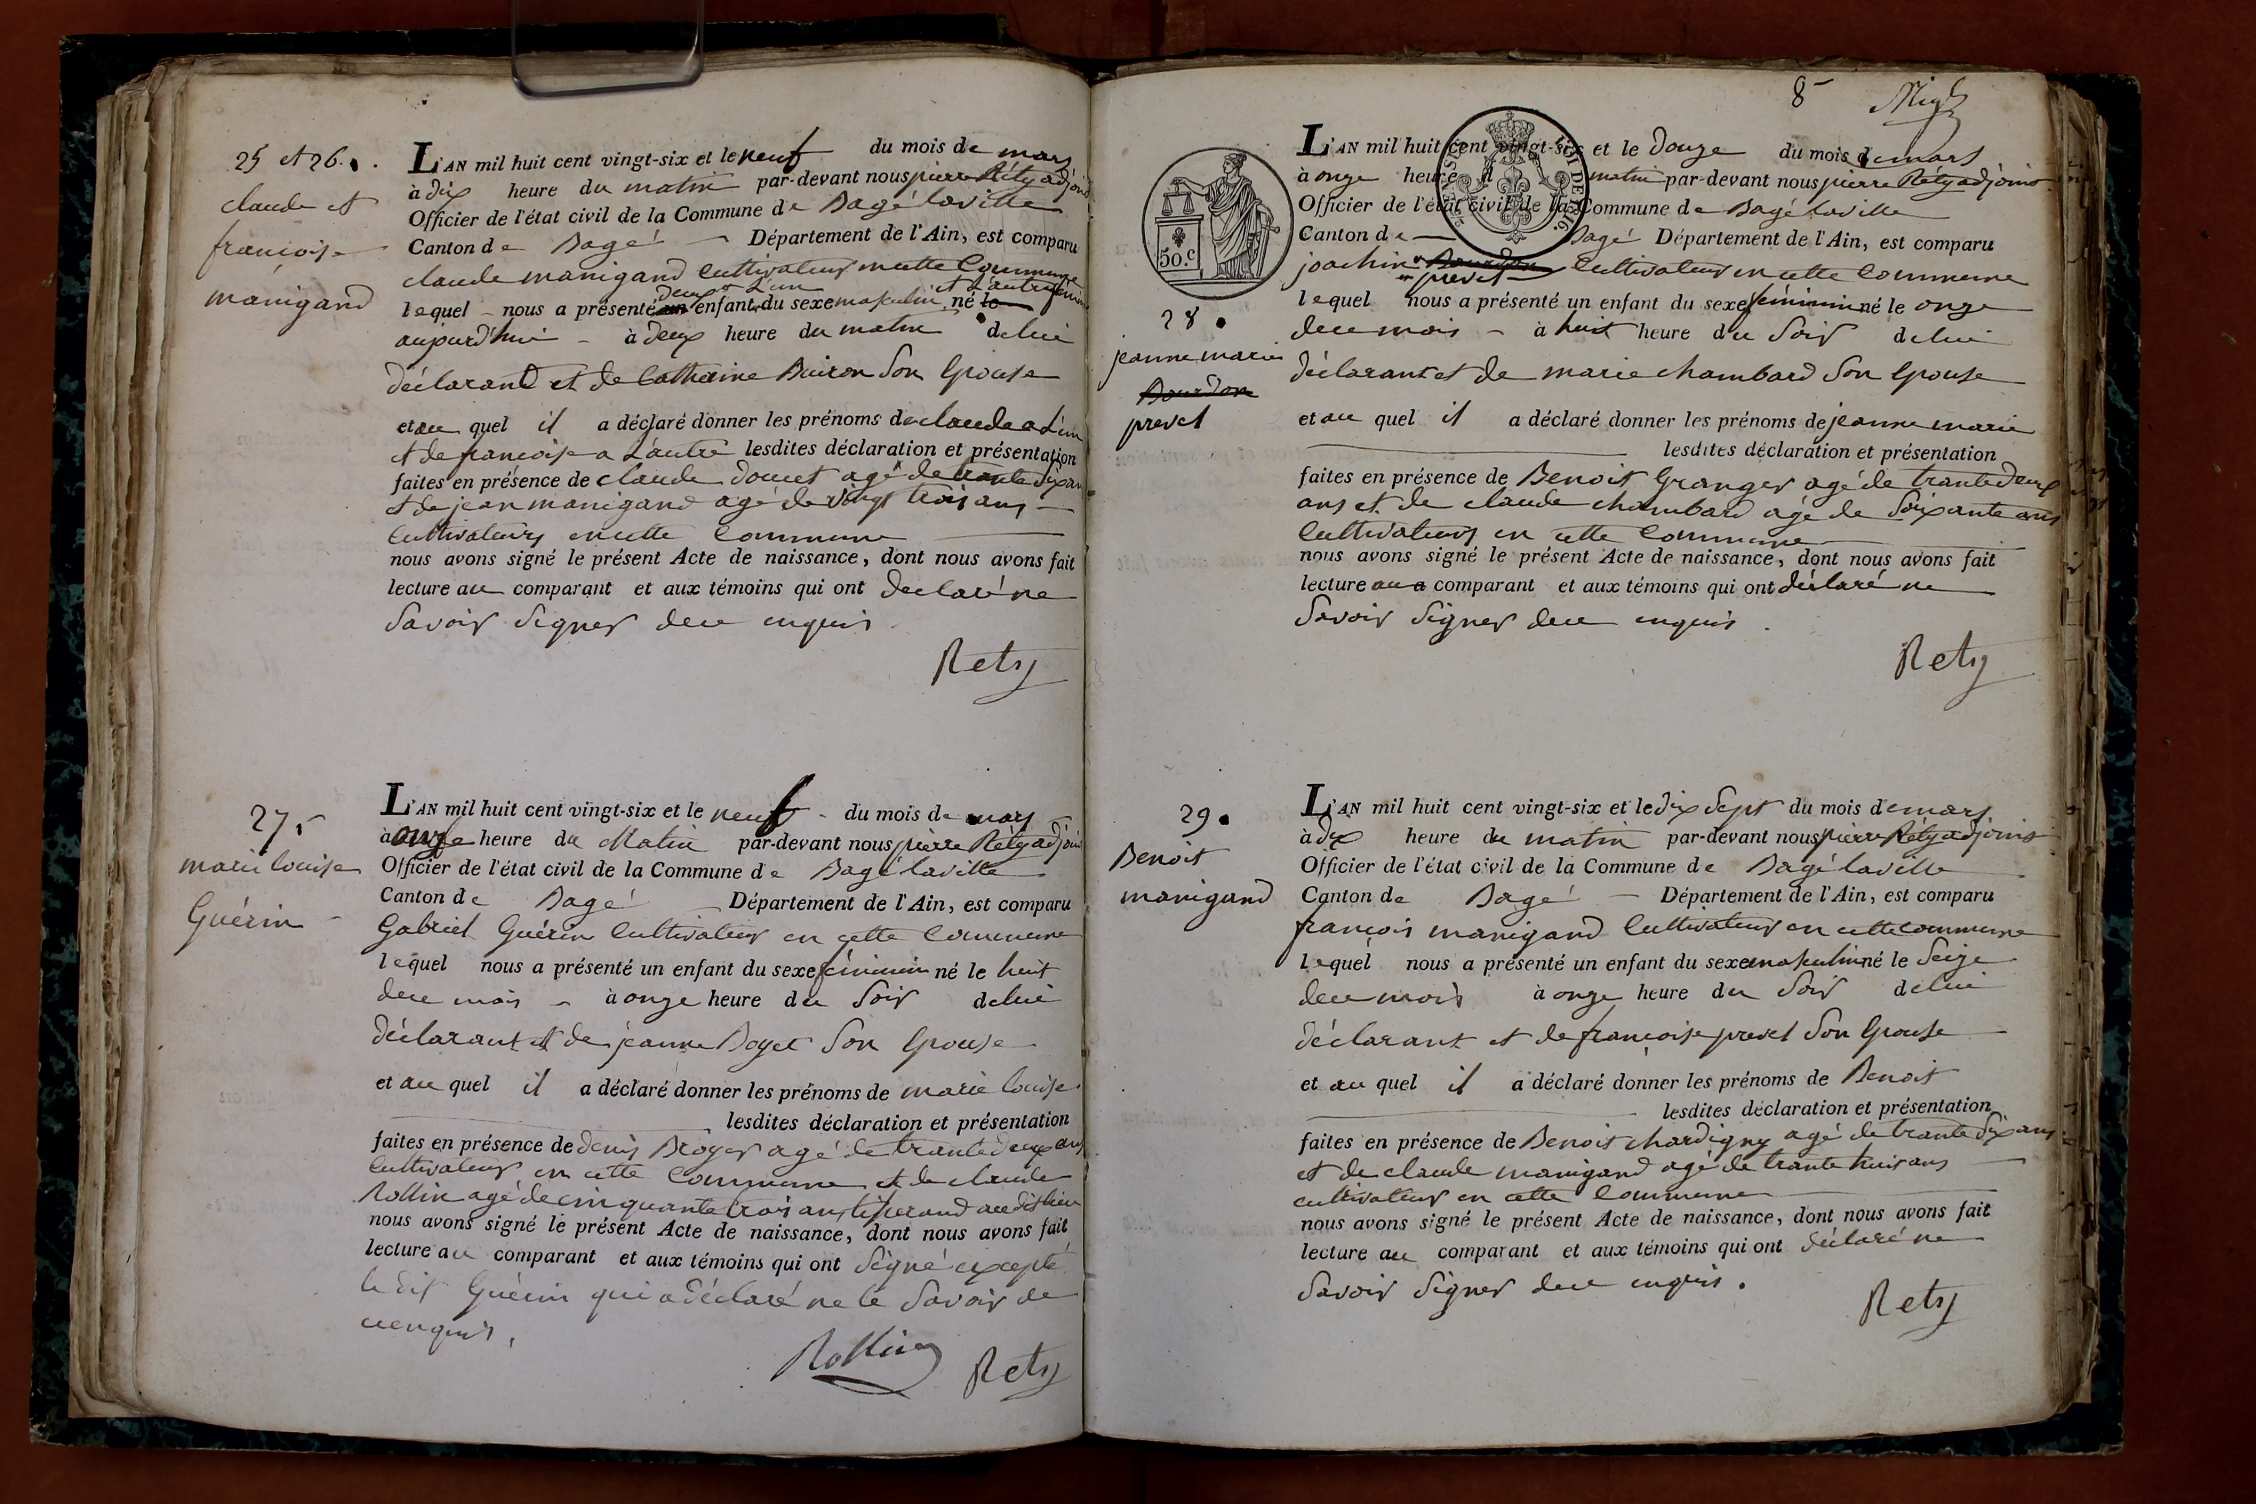 25 et 26.
claude et
francoise
manigand
L'AN mil huit cent vingt-six et le neuf du mois de mars
à dix heure du matin par-devant nous pierre Réty adjoint
Officier de l'état civil de la Commune de Bagé laville
Canton de Bagé Département de l'Ain, est comparu
claude manigand Cultivateur en cette Commune
deux l'un et l'autre féminin
lequel nous a présenté un enfant du sexe masculin né le
aujourd'hui à deux heure du matin de lui
déclarant et de Catherine Buiron Son Epouse
et au quel il a déclaré donner les prénoms de claude a L'un
et de francoise a L'autre lesdites déclaration et présentation
faites en présence de claude doucet agé de trante six ans
et de jean manigand agé de vingt trois ans
Cultivateurs en cette Commune
nous avons signé le présent Acte de naissance, dont nous avons fait
lecture au comparant et aux témoins qui ont déclaré ne
Savoir Signer de ce enquis
Rety
27
marie louise
Guérin
L'AN mil huit cent vingt-six et le neuf du mois de mars
à onze heure du Matin par-devant nous pierre Réty adjoint
Officier de l'état civil de la Commune de Bagé laville
Canton de Bagé Département de l'Ain, est comparu
Gabriel Guérin Cultivateur en cette Commune
lequel nous a présenté un enfant du sexe féminin né le huit
de ce mois à onze heure du Soir de lui
déclarant et de jeanne Boyet Son Epouse
et au quel il a déclaré donner les prénoms de marie louise
lesdites déclaration et présentation
faites en présence de denis Broyer agé de trante deux ans
Cultivateur en cette Commune et de claude
Rollin agé de cinquante trois ans tisserand au dit lieu
nous avons signé le présent Acte de naissance, dont nous avons fait
lecture au comparant et aux témoins qui ont Signé excepté
le dit Guérin qui a déclaré ne le Savoir de
ce enquis.
Rollin Rety
8
50.c
28.
jeanne marie
Bourdon
prevel
L'AN mil huit cent vingt-six et le douze du mois de mars
à onze heure du matin par-devant nous pierre Réty adjoint
Officier de l'état civil de la Commune de Bagé laville
Canton de Bagé Département de l'Ain, est comparu
joachim Bourdon Cultivateur en cette Commune
prevel
lequel nous a présenté un enfant du sexe féminin né le onze
de ce mois à huit heure du Soir de lui
déclarant et de marie chambard Son Epouse
et au quel il a déclaré donner les prénoms de jeanne marie
lesdites déclaration et présentation
faites en présence de Benoit Granger agé de trante deux
ans et de claude chambard agé de Soixante ans
Cultivateurs en cette Commune
nous avons signé le présent Acte de naissance, dont nous avons fait
lecture au comparant et aux témoins qui ont déclaré ne
Savoir Signer de ce enquis.
Rety
29.
Benoit
manigand
L'AN mil huit cent vingt-six et le dix Sept du mois de mars
à dix heure du matin par-devant nous pierre Réty adjoint
Officier de l'état civil de la Commune de Bagé laville
Canton de Bagé Département de l'Ain, est comparu
françois manigand Cultivateur en cette commune
lequel nous a présenté un enfant du sexe masculin né le Seize
de ce mois à onze heure du Soir de lui
déclarant et de françoise prevel Son Epouse
et au quel il a déclaré donner les prénoms de Benoit
lesdites déclaration et présentation
faites en présence de Benoit chardigny agé de trante Six ans
et de claude manigand agé de trante huit ans
cultivateurs en cette Commune
nous avons signé le présent Acte de naissance, dont nous avons fait
lecture au comparant et aux témoins qui ont déclaré ne
Savoir Signer de ce enquis.
Rety